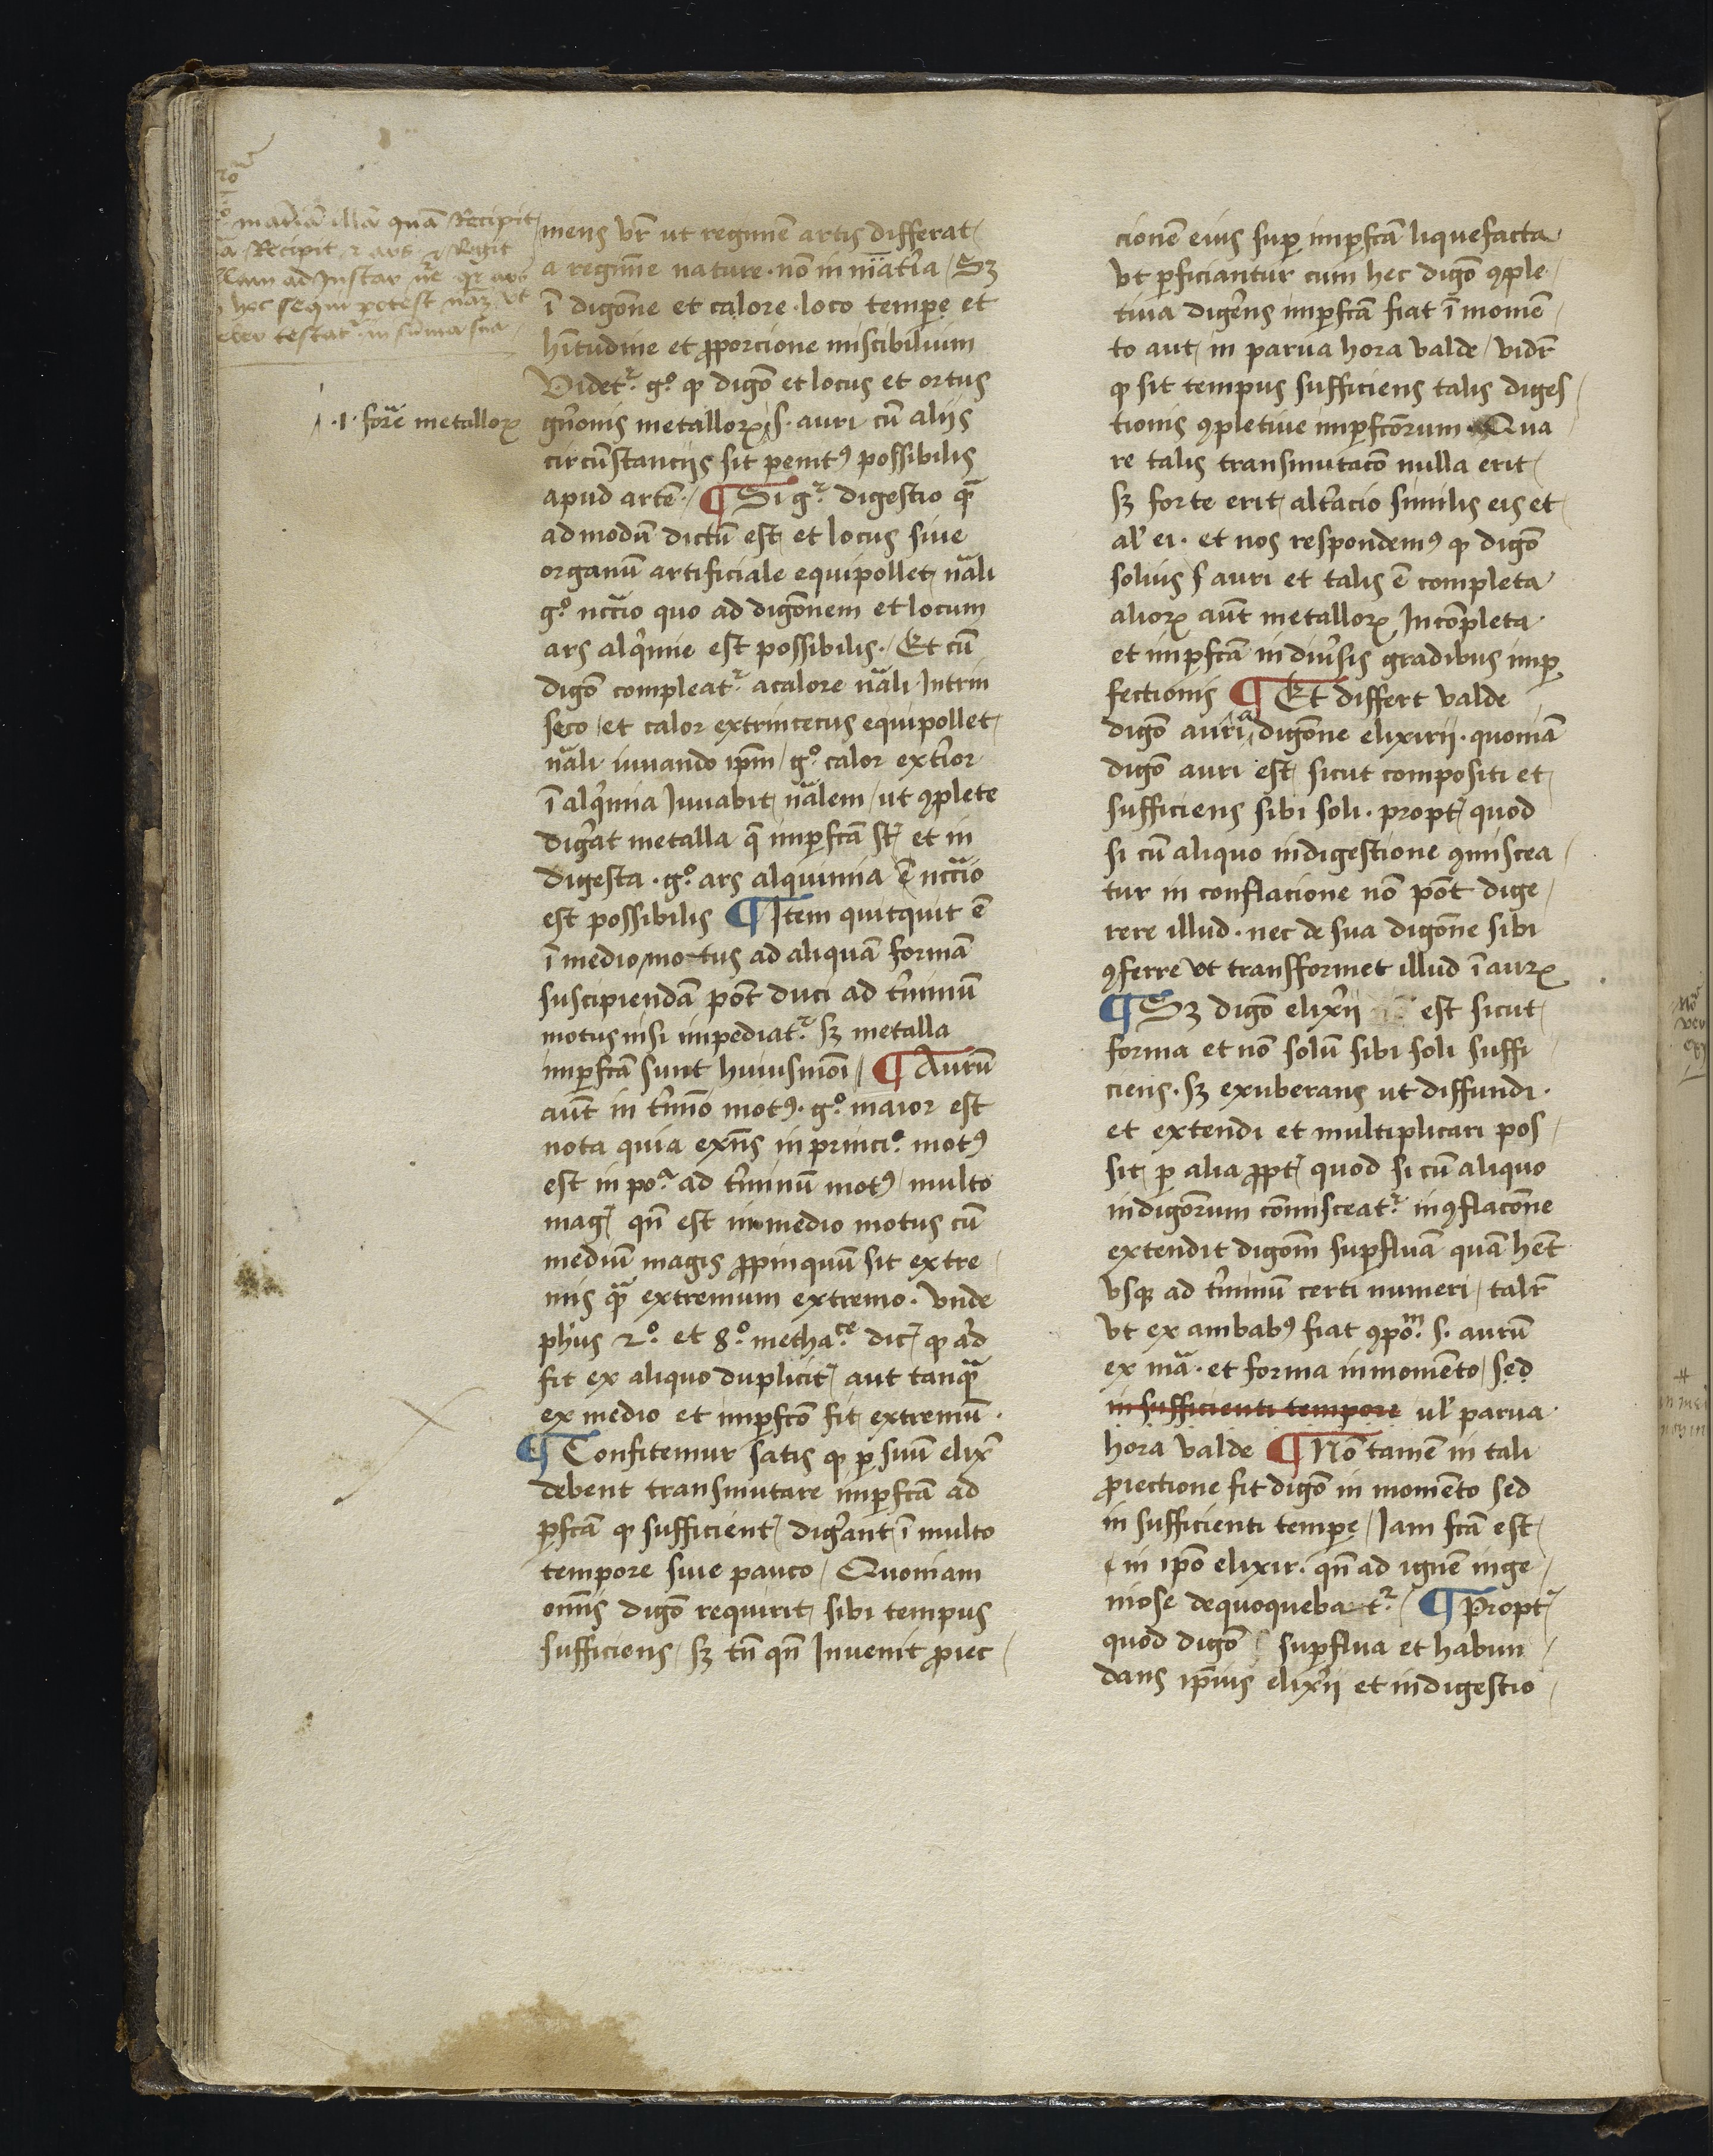 materiā illā quā Recipit
Recipit ⁊ ars ⁊ Regit
ad Instar nr̄e qr̄ ars
hoc sequi potest nāʒ vt
testatᷣ in sūma sua
.1. for̄e metalloꝝ
mens vr̄ ut regimē artis differat
a regimīe nature · nō in māteria / Sʒ
ī digōne et calore · loco tempe et
hītudine et ꝓporcione miscibilium
Videtᷣ gͦ ꝙ digō et locus et ortus
gn̄onis metalloꝝ / s · auri cū aliis
circūstanciis sit penitꝰ possibilis
apud artē / ¶ Si gᷣ digestio qᷓ
admodū dictū est et locus siue
organū artificiale equipollet nāli
gͦ nccīo quo ad digōnem et locum
ars alq̄mie est possibilis · / Et cū
digō compleatᷣ a calore nāli Intrin
seco / et calor extrincecus equipollet
nāli iuuando ip̄m / gͦ calor ext̄ior
ī alq̄mia Iuuabit nālem / ut ꝯplete
diḡat metalla q̄ imp̄fcā st̄ et in
digesta · gͦ ars alquimia ē nccīo
est possibilis ¶ Item quitquit ē
ī medio motus ad aliquā formā
suscipiendā pōt duci ad t̄minū
motus nisi impediatᷣ sʒ metalla
imp̄fcā sunt huiusmōi / ¶ Aurū
aūt in t̄mīo motꝰ · gͦ maior est
nota quia exn̄s in princiͦ motꝰ
est in poᷓ ad t̄minū motꝰ / multo
magꝭ qn̄ est in medio motus cū
mediū magis ꝓpinquū sit extre
mis qᷓ extremum extremo · vnde
ph̄us 2ͦ · et 8ͦ · metha᷒ce dicꝭ ꝙ a'd
fit ex aliquo duplicitꝭ aut tanqᷓ
ex medio et imp̄fcō fit extremū ·
¶ Confitemur satis ꝙ ꝑ suū elix̄
debent transmutare imp̄fcā ad
ꝑfcā ꝙ sufficientꝭ diḡant ī multo
tempore siue pauco / Quoniam
om̄is digō requirit sibi tempus
sufficiens / sʒ tn̄ qn̄ Inuenit ꝓiec
cionē eius suꝑ imp̄fcā liquefacta
vt ꝑficiantur cum hec digō ꝯple
tiua diḡens imp̄fcā fiat ī momē
to aut in parua hora valde / vidr̄
ꝙ sit tempus sufficiens talis diges
tionis ꝯpletiue imp̄fcōrum · Qua
re talis transmutacō nulla erit
sʒ forte erit alt̄acio similis eis et
al' ei · et nos respondemꝰ ꝙ digō
solius s auri et talis ē completa
alioꝝ aūt metalloꝝ Incōpleta
et imp̄fcā in diu̅sis gradibus imꝑ
fectionis ¶ Et differt valde
digō auri a digōne elixirii · quoniā
digō auri est sicut compositi et
sufficiens sibi soli · proptꝭ quod
si cū aliquo indigestione ꝯmiscea
tur in conflacione nō pōt dige
rere illud · nec de sua digōne sibi
ꝯferre vt transformet illud ī auꝝ
¶ Sʒ digō elix̄ii est sicut
forma et nō solū sibi soli suffi
ciens · sʒ exuberans ut diffundi ·
et extendi et multiplicari pos
sit ꝑ alia ꝓptꝭ quod si cū aliquo
indigōrum cōmisceatᷣ in ꝯflacōne
extendit digōm suꝑfluā quā hēt
vsqꝫ ad t̄minū certi numeri / talr̄
vt ex ambabꝰ fiat ꝯpōᷟ · s · aurū
ex mā · et forma in momēto / sed
in sufficienti tempore ul' parua
hora valde ¶ Nō tamē in tali
ꝓiectione fit digō in momēto sed
in sufficienti tempe / Iam fcā est
in ip̄o elixir · qn̄ ad ignē inge
niose dequoquebatᷣ / ¶ Proptꝭ
quod digō suꝑflua et habun
dans ip̄ius elix̄ii et indigestio